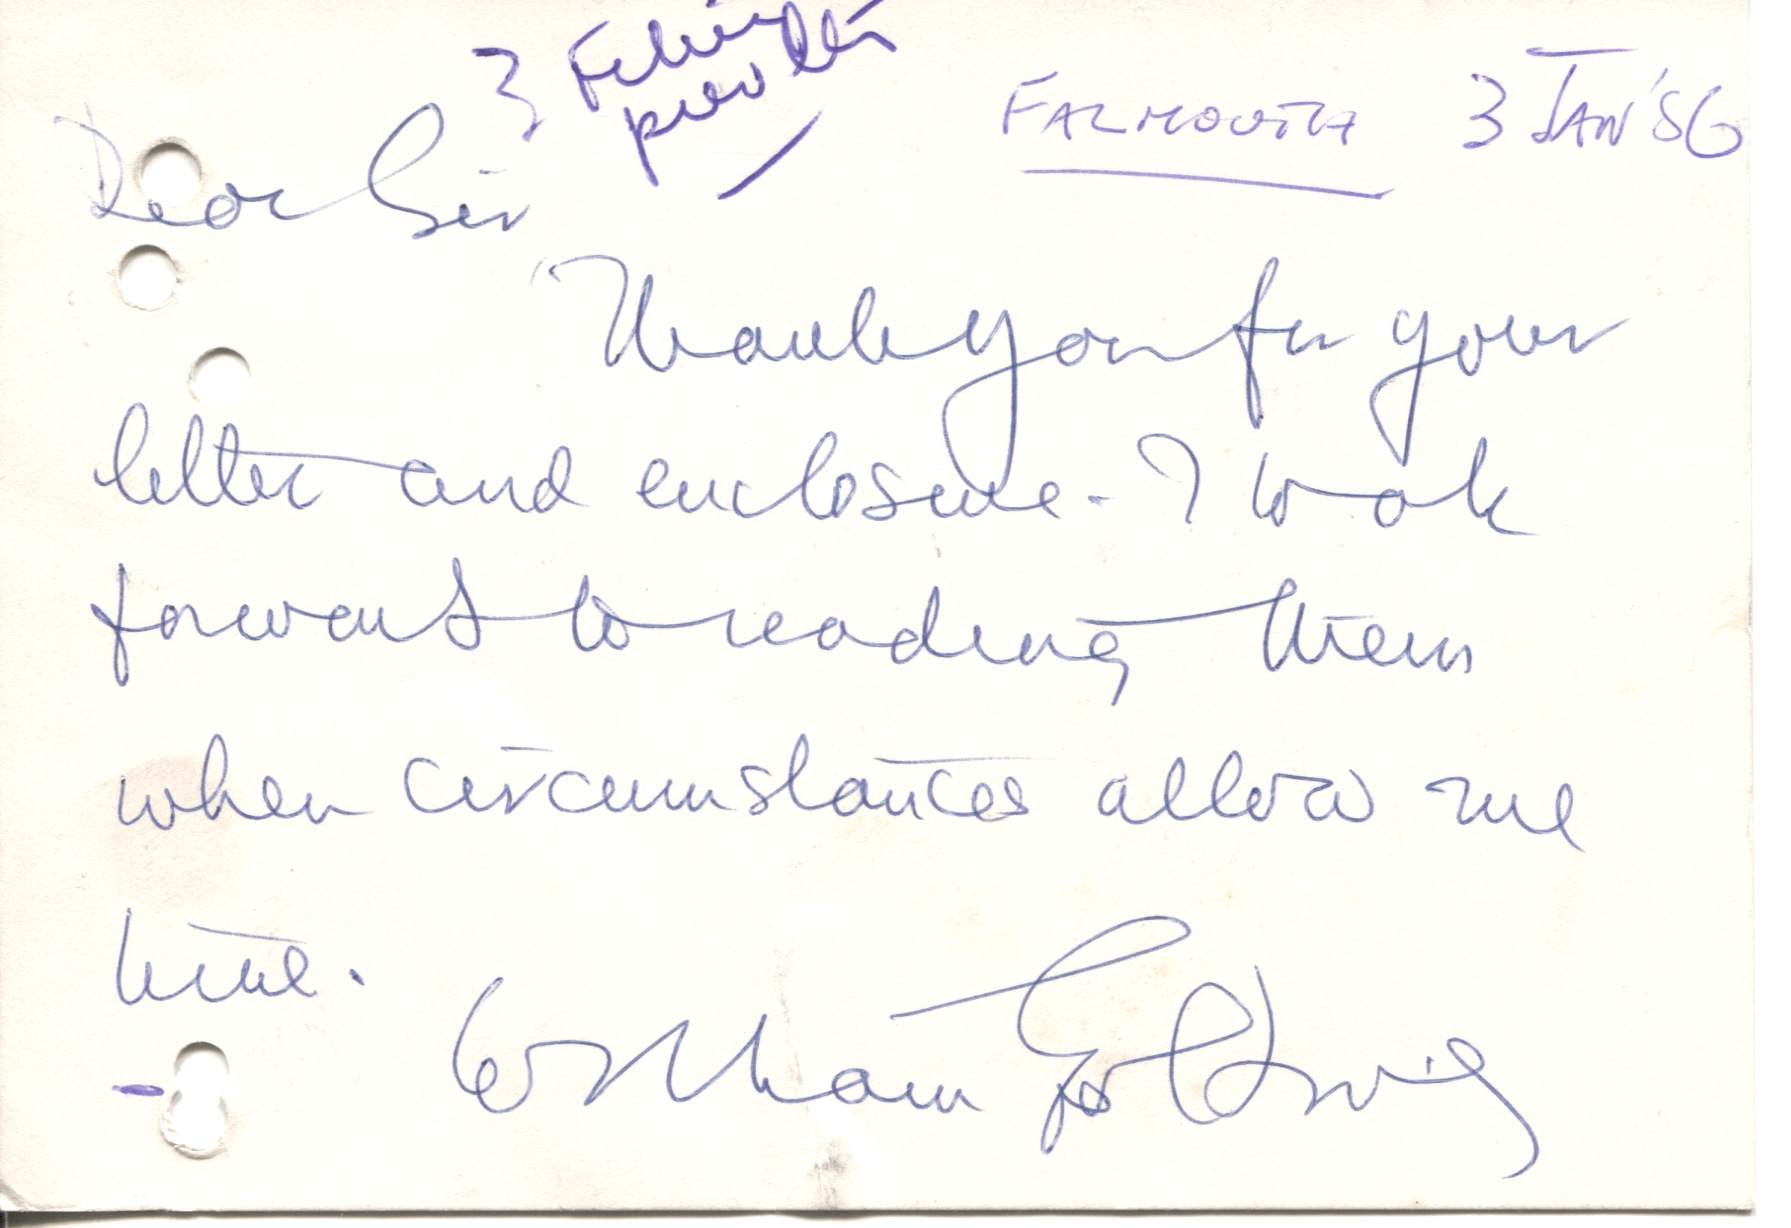 3
FALMOUTH 3 JAN '86
Dear Sir
Thank you for your
letter and enclosure - I look
forward to reading them
when circumstances allow me
time.
William Golding